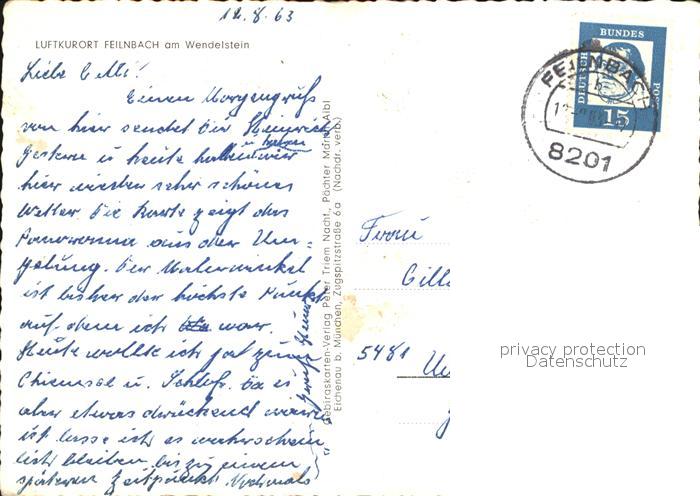 12.8.63
LUFTKURORT FEILNBACH am Wendelstein
Liebe Cilli!
Einen Morgengruß
von hier sendet Dir Heinrich
Gestern u heute haben wir
hier wieder sehr schönes
Wetter. Die Karte zeigt das
Panorama aus der Um=
gebung. Der
ist bisher der höchste Punkt
auf dem ich war.
Heute wollte ich zum
Chiemsee u. Schloß. Da es
aber etwas drückend warm
ist lasse ich es wahrschein
lich bleiben bis zu einem
späteren Zeitpunkt Nochmals
Gebirgskarten-Verlag Peter Triem Nacht., Pächter Martin Albl
Eichenau b. München, Zugspitzstraße 6a (Nachdr. verb.)
DEUTSCHE
BUNDES
POST
15
FEILNBACH
8201
Frau
Cill
5481
privacy protection
Datenschutz